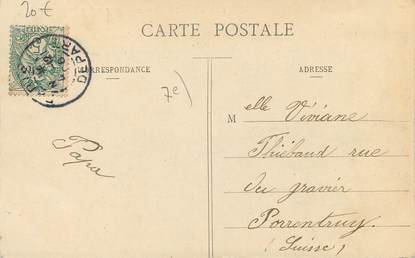 20 €
CARTE POSTALE
CORRESPONDANCE
ADRESSE
7e
Melle Viviane
Thiébaud rue
du gravier
Porrentruy
(Suisse)
Papa